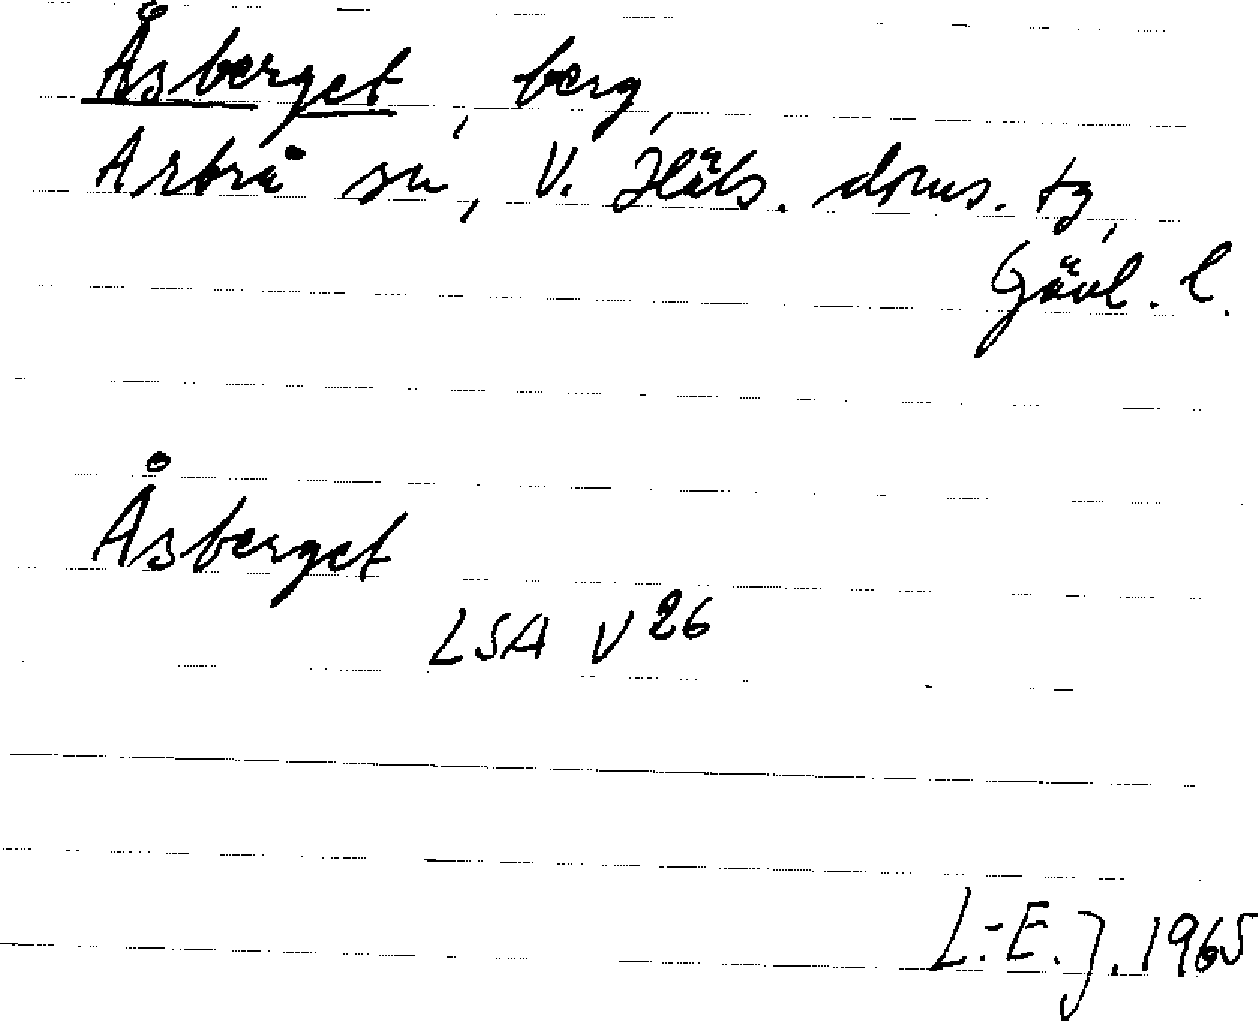 Åsberget, berg,
Arbrå sn, V. Häls. doms. tg,
Gävl. l.
Åsberget
LSA V26
L.-E. J. 1965